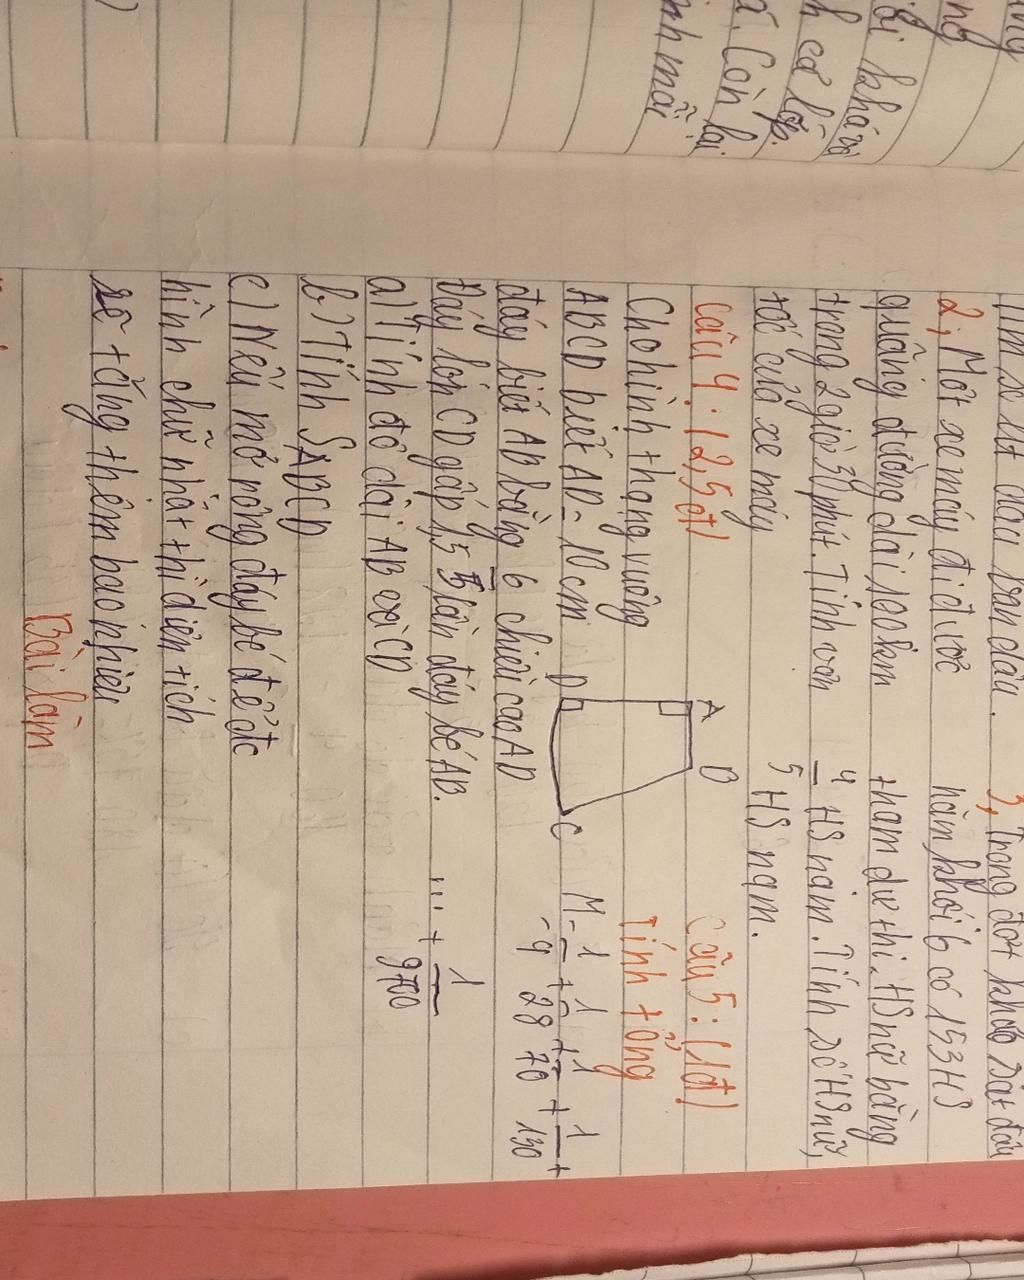 ng
ng
ại khá và
h cả lớp.
số. Còn lại
inh mỗi
Tìm số lít dầu ban đầu.
2, Một xe máy đi được
quãng đường dài 100km
trong 2 giờ 30 phút. Tính vận
tốc của xe máy
Câu 4: (2,5đ)
Cho hình thang vuông
ABCD biết AD = 10cm
đáy biết AB bằng 6 chiều cao AD
Đáy lớn CD gấp 1,5 lần đáy bé AB.
a) Tính độ dài AB và CD
b) Tính SABCD
c) Nếu mở rộng đáy bé để đc
hình chữ nhật thì diện tích
sẽ tăng thêm bao nhiêu
A B
D C
3, Trong đợt khảo sát đầu
năm khối 6 có 153HS
tham dự thi. HS nữ bằng
4/5 HS nam. Tính số HS nữ,
HS nam.
Câu 5: (1đ)
Tính tổng
M = 1/4 + 1/28 + 1/70 + 1/130 +
... + 1/9700
Bài làm